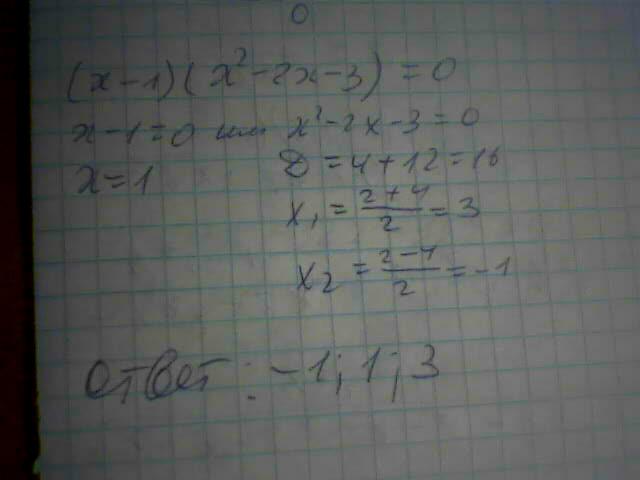 0
(x-1)(x²-2x-3)=0
x-1=0 или x²-2x-3=0
x=1 D=4+12=16
x₁=\frac{2+4}{2}=3
x₂=\frac{2-4}{2}=-1
Ответ: -1; 1; 3